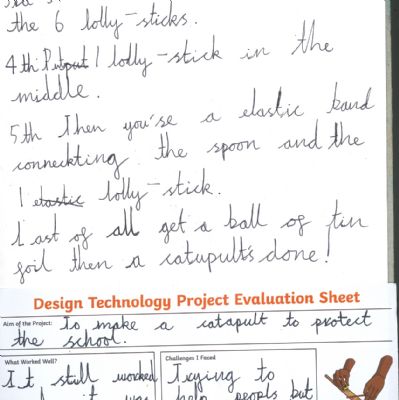 the 6 lolly-sticks.
4th Put 1 lolly-stick in the
middle.
5th Then you'se a elastic band
conneckting the spoon and the
1 elastic lolly-stick.
Last of all get a ball of tin
foil then a catupult's done!
Design Technology Project Evaluation Sheet
Aim of the Project: To make a catapult to protect
the school.
What Worked Well?
Challenges I Faced
It still worked
Trying to
it was
help people but